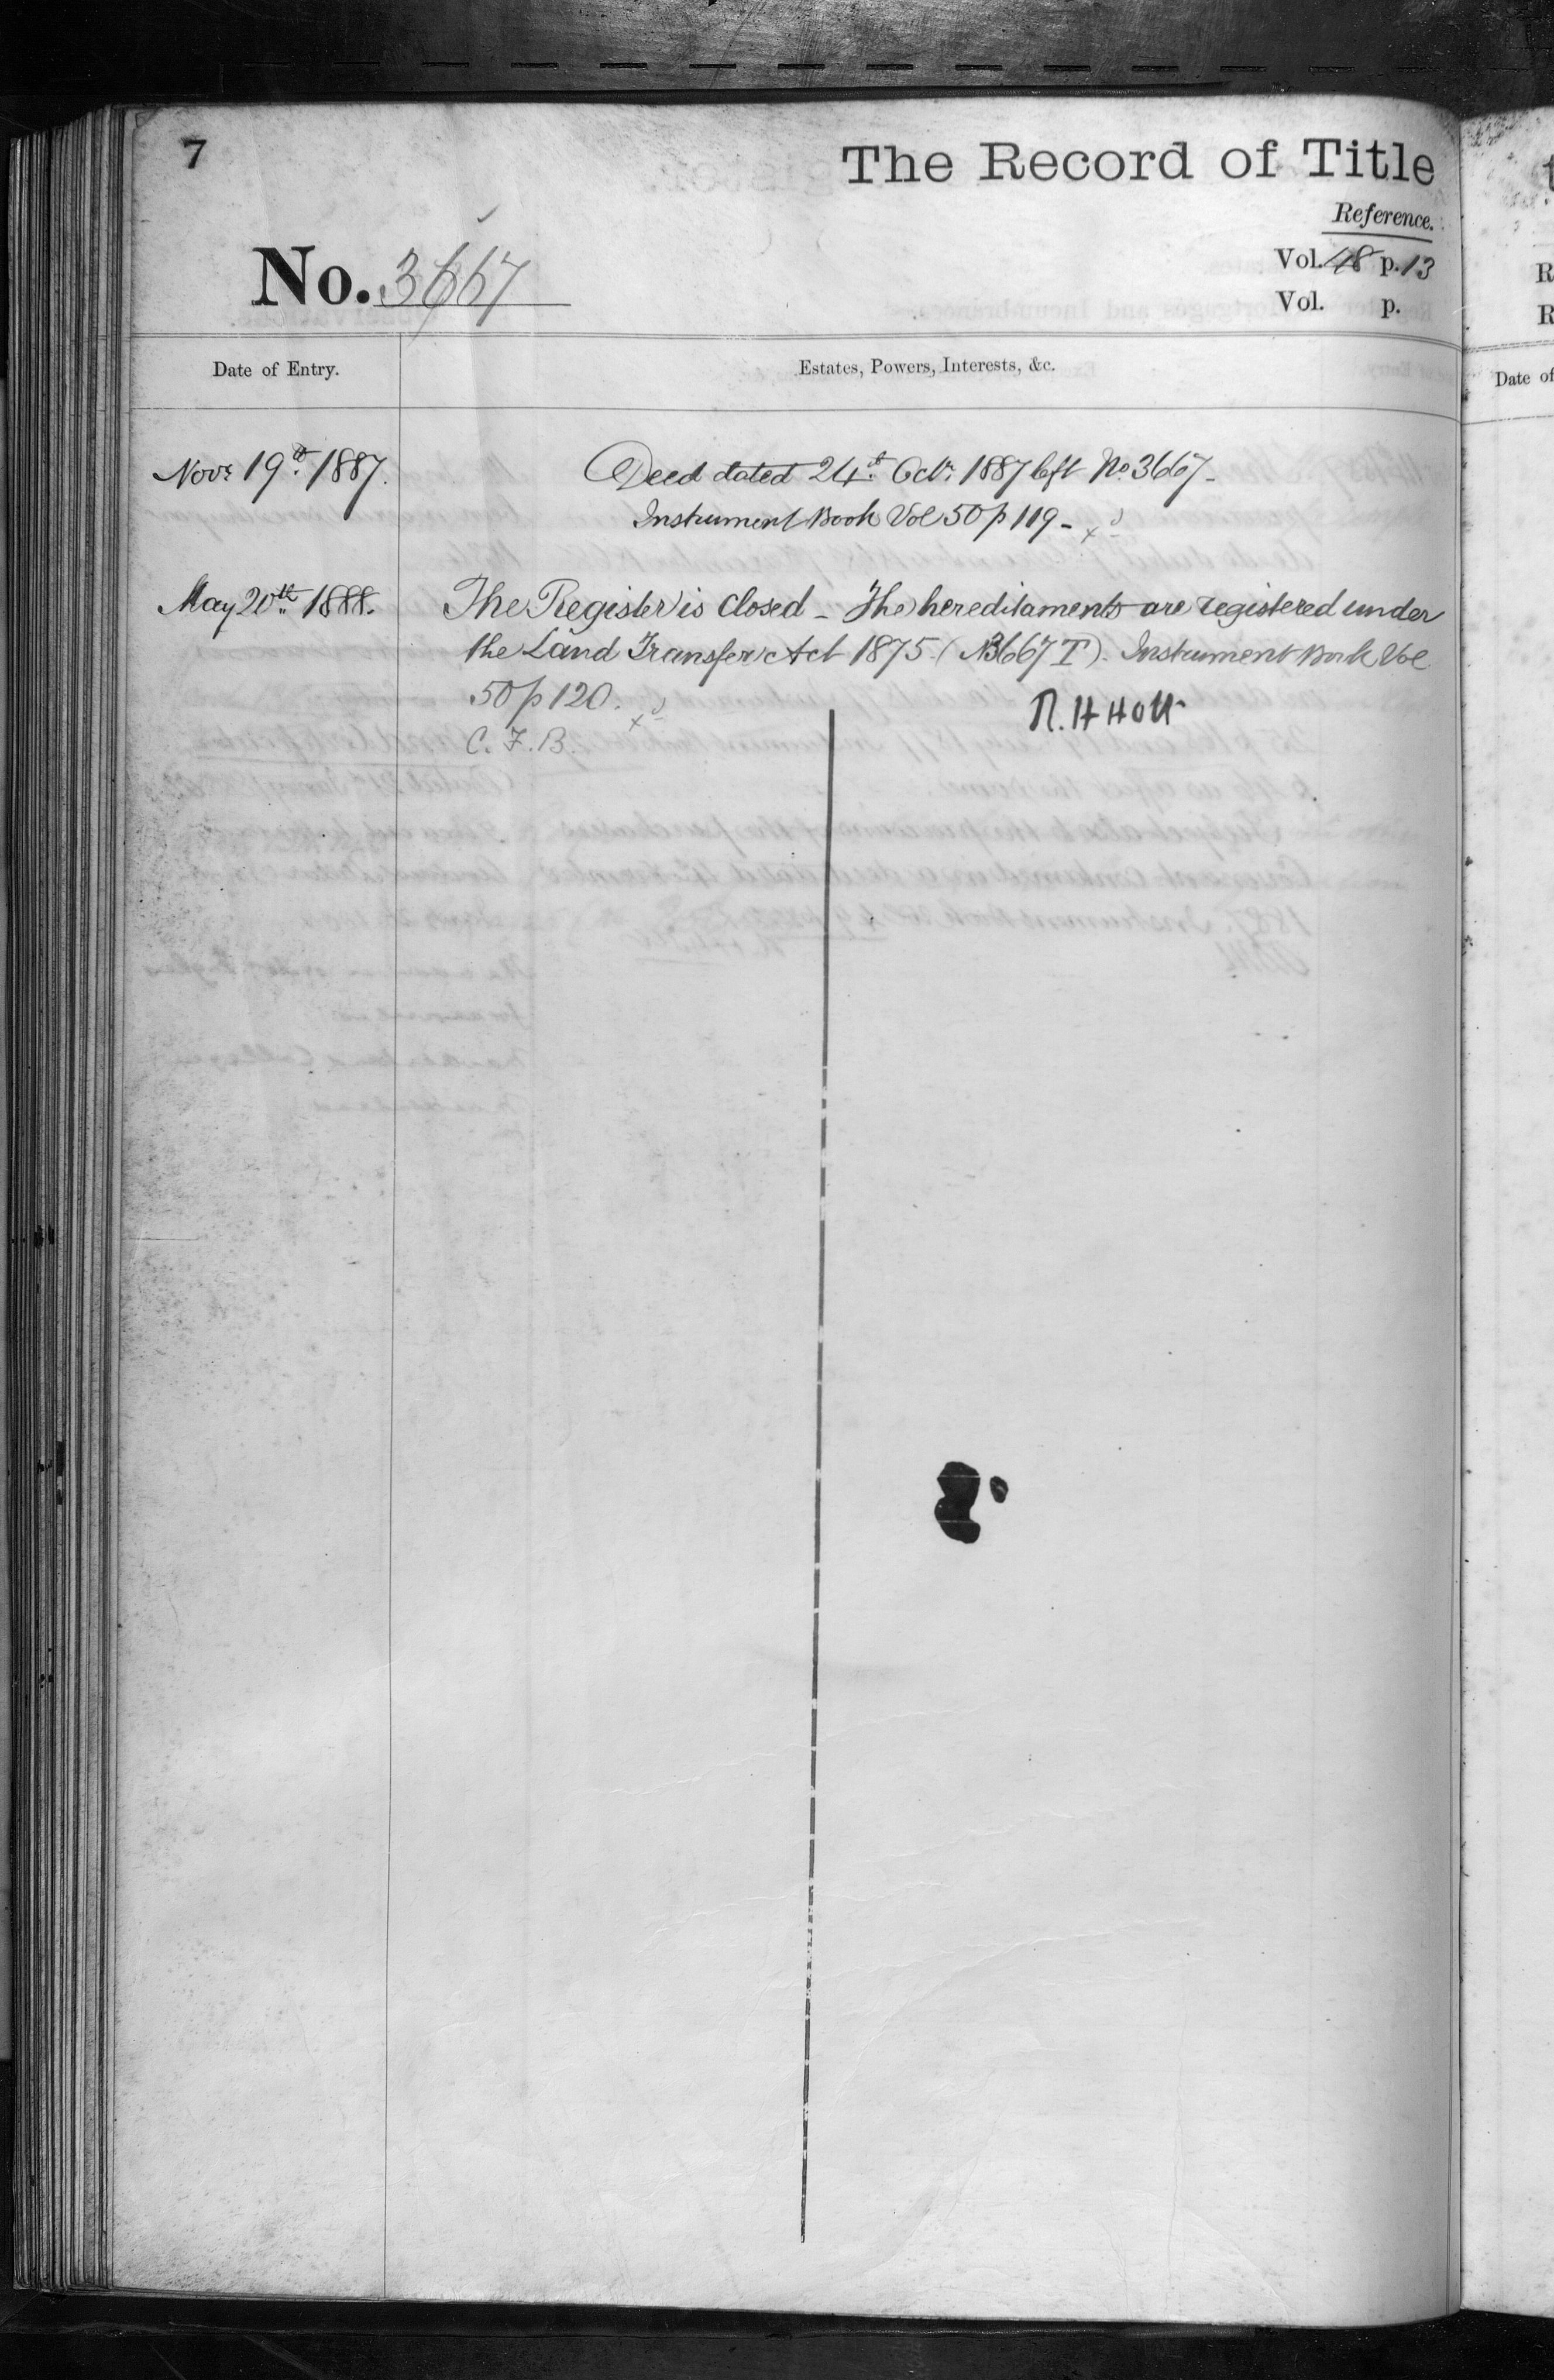 7
The Record of Title
Reference.
Vol. 48 p. 13
Vol. p.
No. 3667
Date of Entry.
Estates, Powers, Interests, &c.
Novr 19th 1887.
Deed dated 24th Octr 1887 left No 3667-
Instrument Book Vol 50 p 119 -
May 20th 1888.
The Register is closed - The hereditaments are registered under
the Land Transfer Act 1875 (No 3667 T). Instrument Book Vol
50 p 120.
C. F. B.
R. H Holt
Date of